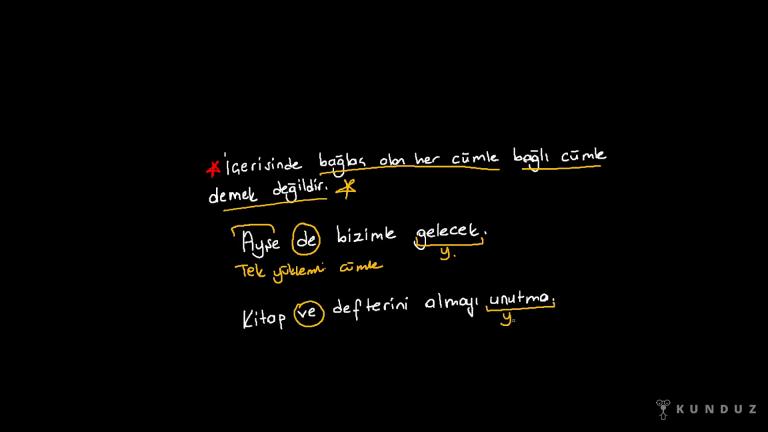 * İçerisinde bağlaç olan her cümle bağlı cümle
demek değildir. *
Ayşe de bizimle gelecek.
y.
Tek yüklemli cümle
Kitap ve defterini almayı unutma.
y.
KUNDUZ